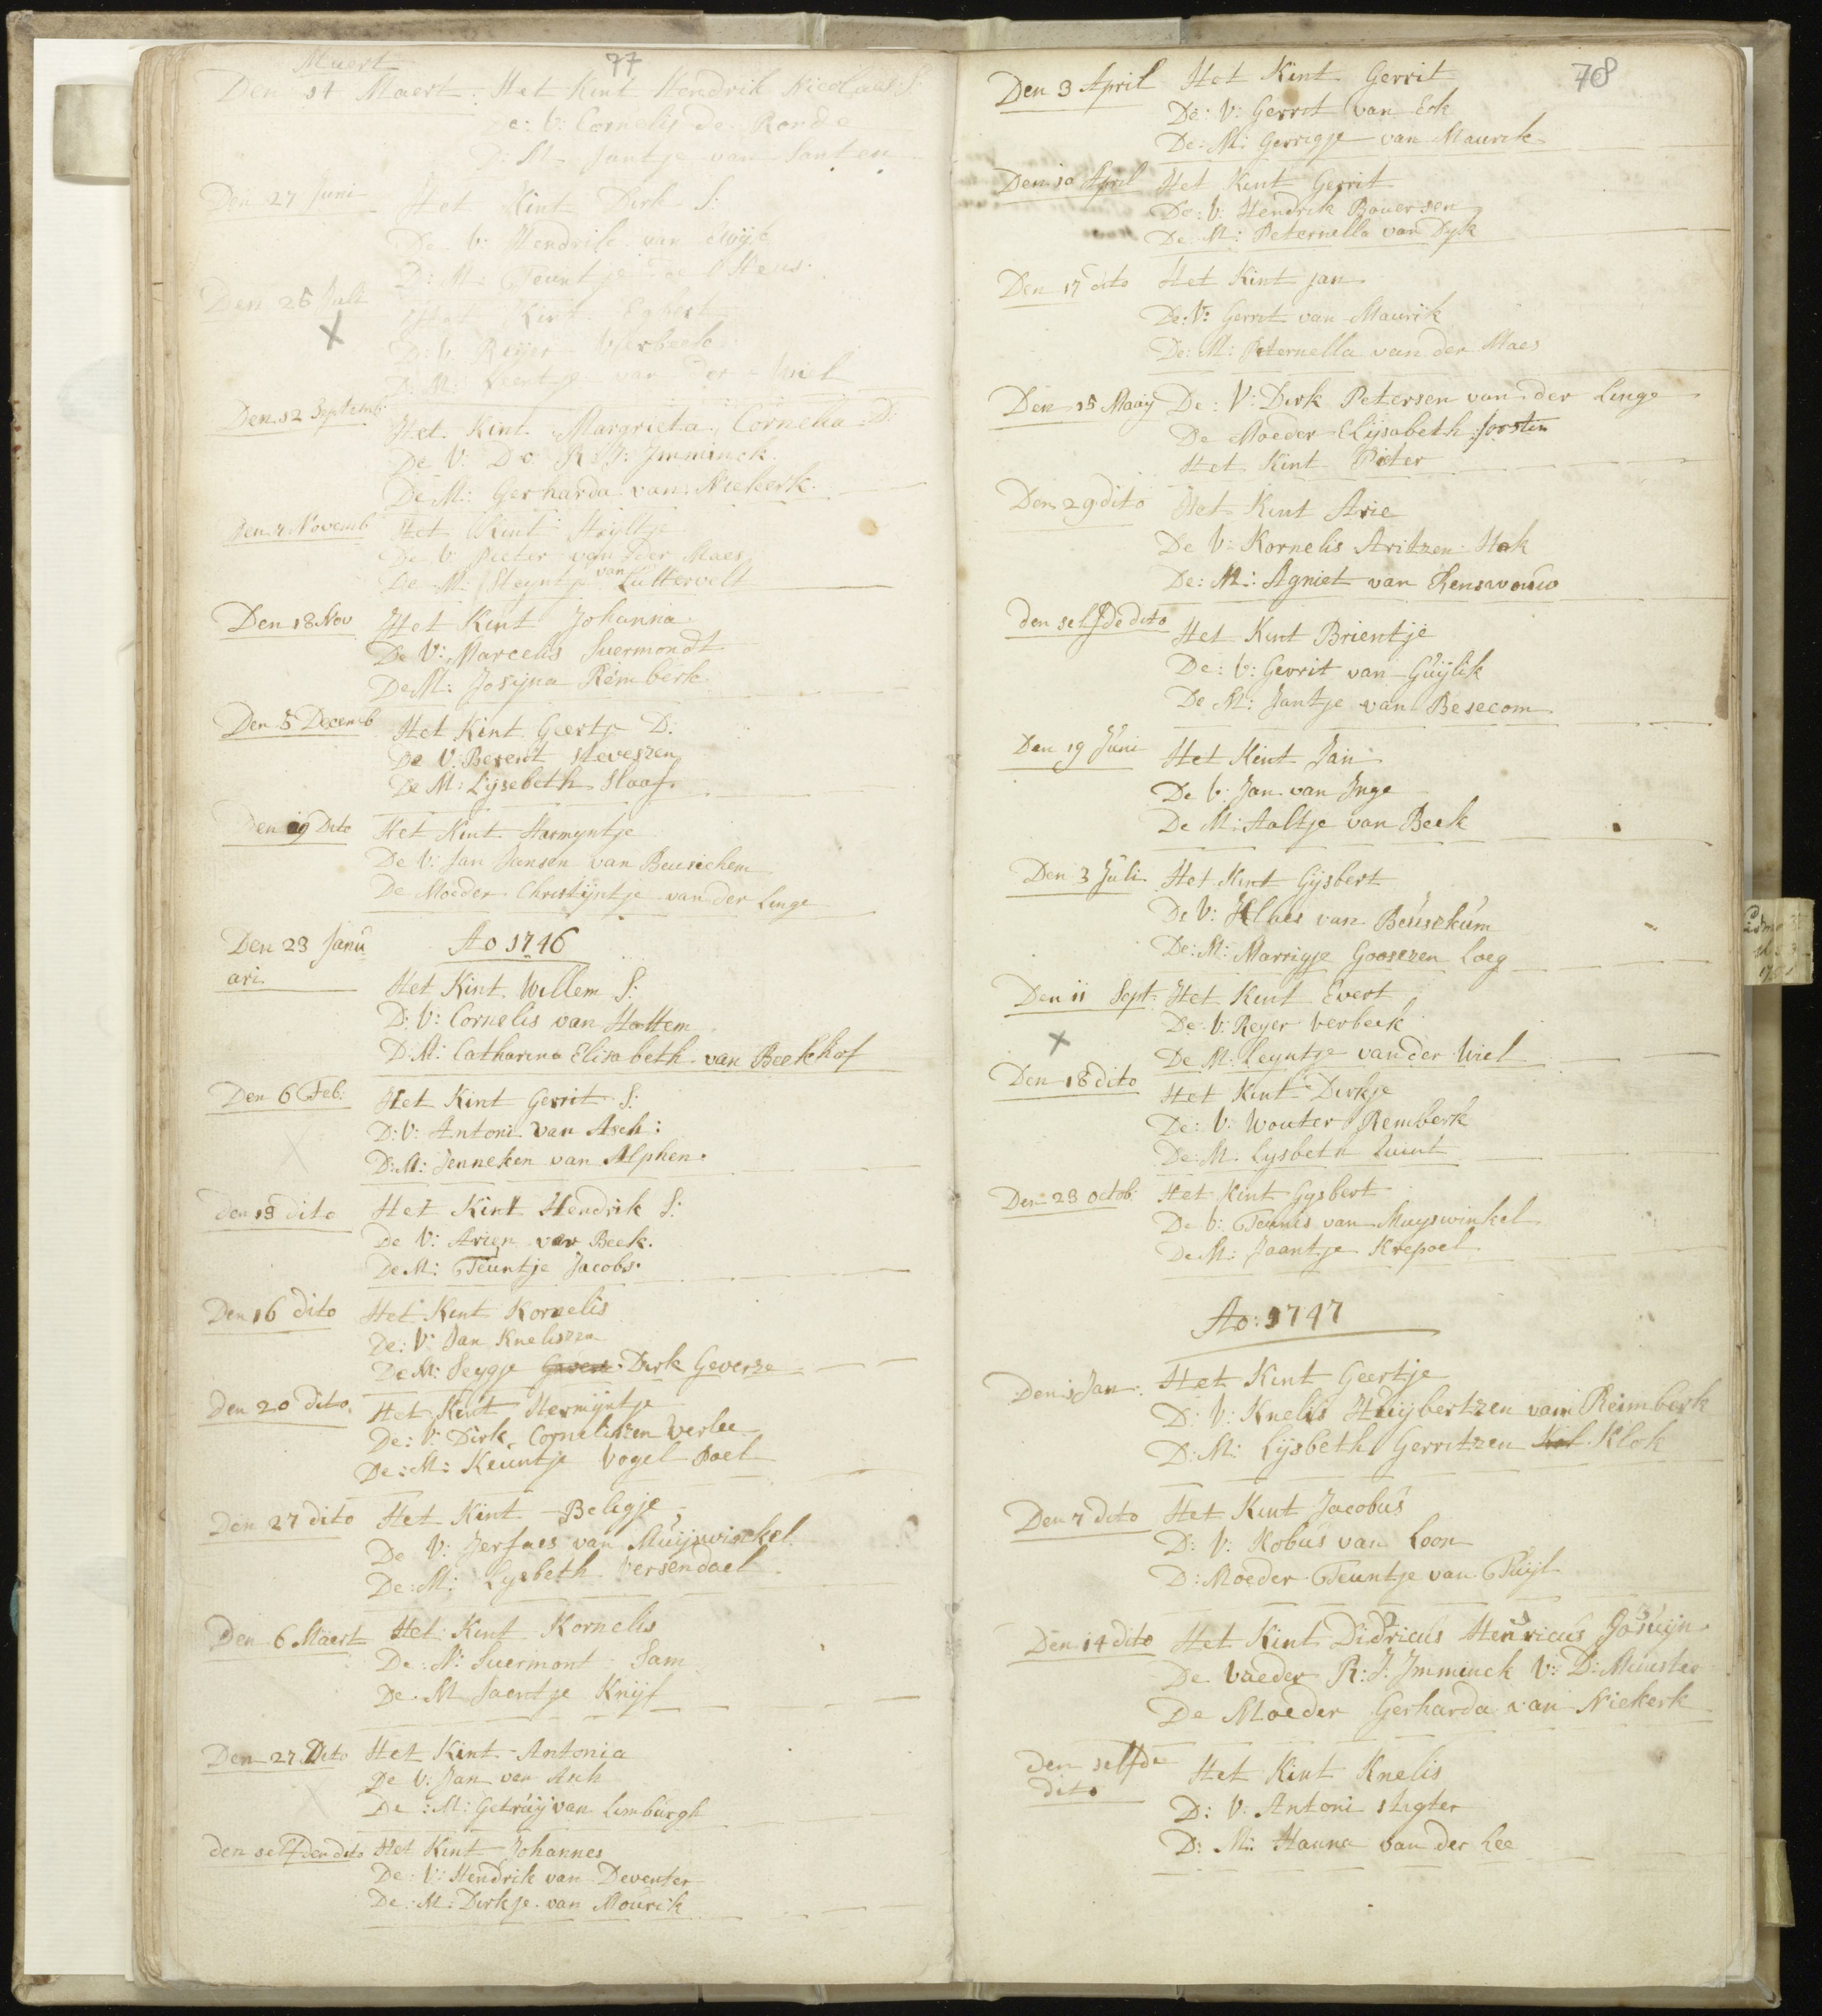 77
Maert
Den 14 Maert Het Kint Hendrik Nicolaas S:
De: V: Cornelis de Ronde
D: M Jantje van Santen
Den 27 Juni Het Kint Dirk S:
De V: Hendrik van
D: M: Teuntje de
Den 25 Juli Het Kint Egbert
D: V: Reijer Verbeek
D: M: Leentje van der Wiel
Den 12 Septemb: Het Kint Margrieta Cornelia D:
De V: Do R: J: Imminck
De M: Gerharda van Niekerk
Den 7 Novemb Het Kint
De V: Pieter van der Maes
De M: Steyntje van Luttervelt
Den 18 Nov Het Kint Johanna
De V: Marcelis Suermondt
De M: Josijna Remberk
Den 5 Decemb Het Kint Geertje D:
De V: Berent Steveszen
De M: Lijsebeth Slaaf
Den 19 Dito Het Kint Harmyntje
De V: Jan Jansen van Beusichem
De Moeder Christijntje van der Linge
Den 23 Janu
ari
Ao 1746
Het Kint Willem S:
D: V: Cornelis van Hattem
D: M: Catharina Elisabeth van Beekhof
Den 6 Feb: Het Kint Gerrit S:
D: V: Antoni van Asch:
D: M: Jenneken van Alphen.
den 13 dito Het Kint Hendrik S:
De V: Arien ver Beek.
De M: Teuntje Jacobs.
Den 16 dito Het Kint Kornelis
De: V: Jan Kneliszen
De M: Seygje Dirk Geverze
Den 20 dito. Het Kint Hermijntje
De: V: Dirk Cornelitzen Verlee
De: M: Keuntje Vogel Poel
Den 27 dito Het Kint Beligje
De V: Jerfaes van Muijswinckel
De: M: Lysbeth Versendael
Den 6 Maert Het Kint Kornelis
De: V: Suermont Sam
De. M Jaentje Knijf
Den 27 Dito Het Kint Antonia
De V: Jan van Asch
De: M: Getruij van Limburgh
den selfden dito Het Kint Johannes
De: V: Hendrik van Deventer
De: M: Dirkje van Mourik
78
Den 3 April Het Kint Gerrit
De: V: Gerrit van Eck
De: M: Gerrigje van Maurik
Den 10 April Het Kint Gerrit
De: V: Hendrik Bouersen
De M: Peternella van Dyk
Den 17 dito Het Kint Jan
De: V: Gerrit van Maurik
De: M: Peternella van der Maes
Den 15 Maay De: V: Dirk Petersen van der Linge
De Moeder Elijsabeth Joosten
Het Kint Pieter
Den 29 dito Het Kint Arie
De V: Kornelis Aritzen Hak
De: M: Agniet van Renswouw
den selfde dito Het Kint Brientje
De: V: Gerrit van Guijlik
De M: Jantje van Besecom
Den 19 Juni Het Kint Jan
De V: Jan van Inge
De M: Aaltje van Beek
Den 3 Juli Het Kint Gijsbert
De V: Klaes van Beuszkum
De: M: Marrigje Gooszen Loeg
Den 11 Sept. Het Kint Evert
De: V: Reyer Verbeek
De M: Leyntje van der Wiel
Den 18 dito Het Kint Dirkje
De: V: Wouter Remberk
De: M. Lysbeth Quint
Den 23 Octob: Het Kint Gysbert
De V: Teunis van Muyswinkel
De M: Jaantje Krepoel
Ao: 1747
Den 1 Jan. Het Kint Geertje
D: V: Knelis Huijbertzen van Reimberk
D: M: Lijsbeth Gerritzen Klok
Den 7 dito Het Kint Jacobus
D: V: Kobus van Loon
D: Moeder Teuntje van Tuijl
Den 14 dito Het Kint Didricus Henricus Josuijn
De Vaeder R: J: Imminck V: D: Minister
De Moeder Gerharda van Niekerk
den selfde
dito
Het Kint Knelis
D: V: Antoni Stigter
D: M: Hanna van der Lee